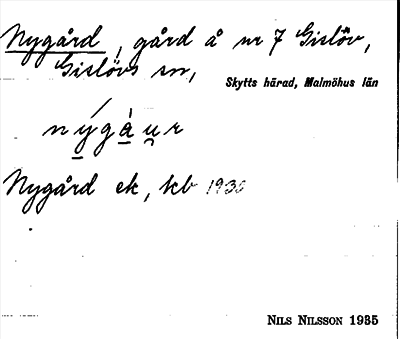 Nygård, gård å nr 7 Gislöv,
Gislövs sn,
Skytts härad, Malmöhus län
nýgàu̯r
Nygård ek, kb 1930
NILS NILSSON 1935